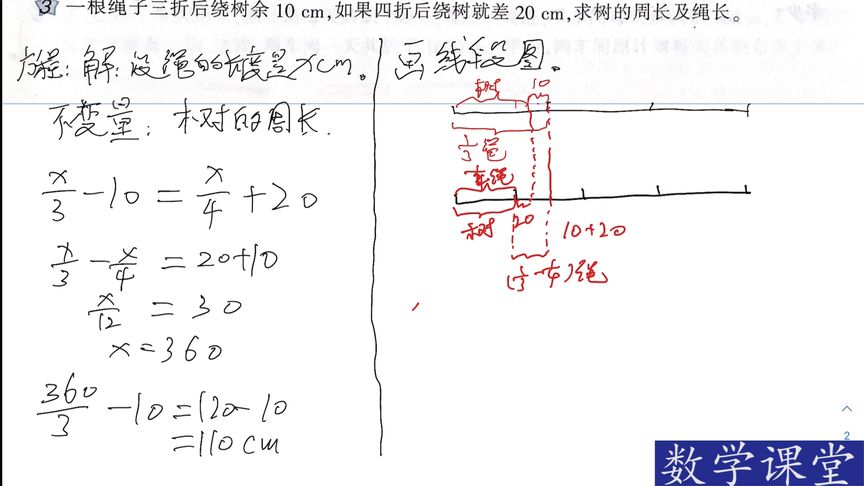 3 一根绳子三折后绕树余 10 cm,如果四折后绕树就差 20 cm,求树的周长及绳长。
方程:解:设绳的长度是xcm。
不变量:树的周长.
x/3-10=x/4+20
x/3-x/4=20+10
x/12=30
x=360
360/3-10=120-10
=110cm
画线段图。
树 10
1/3绳
1/4绳
树 20 10+20
(1/3-1/4)绳
2
数学课堂